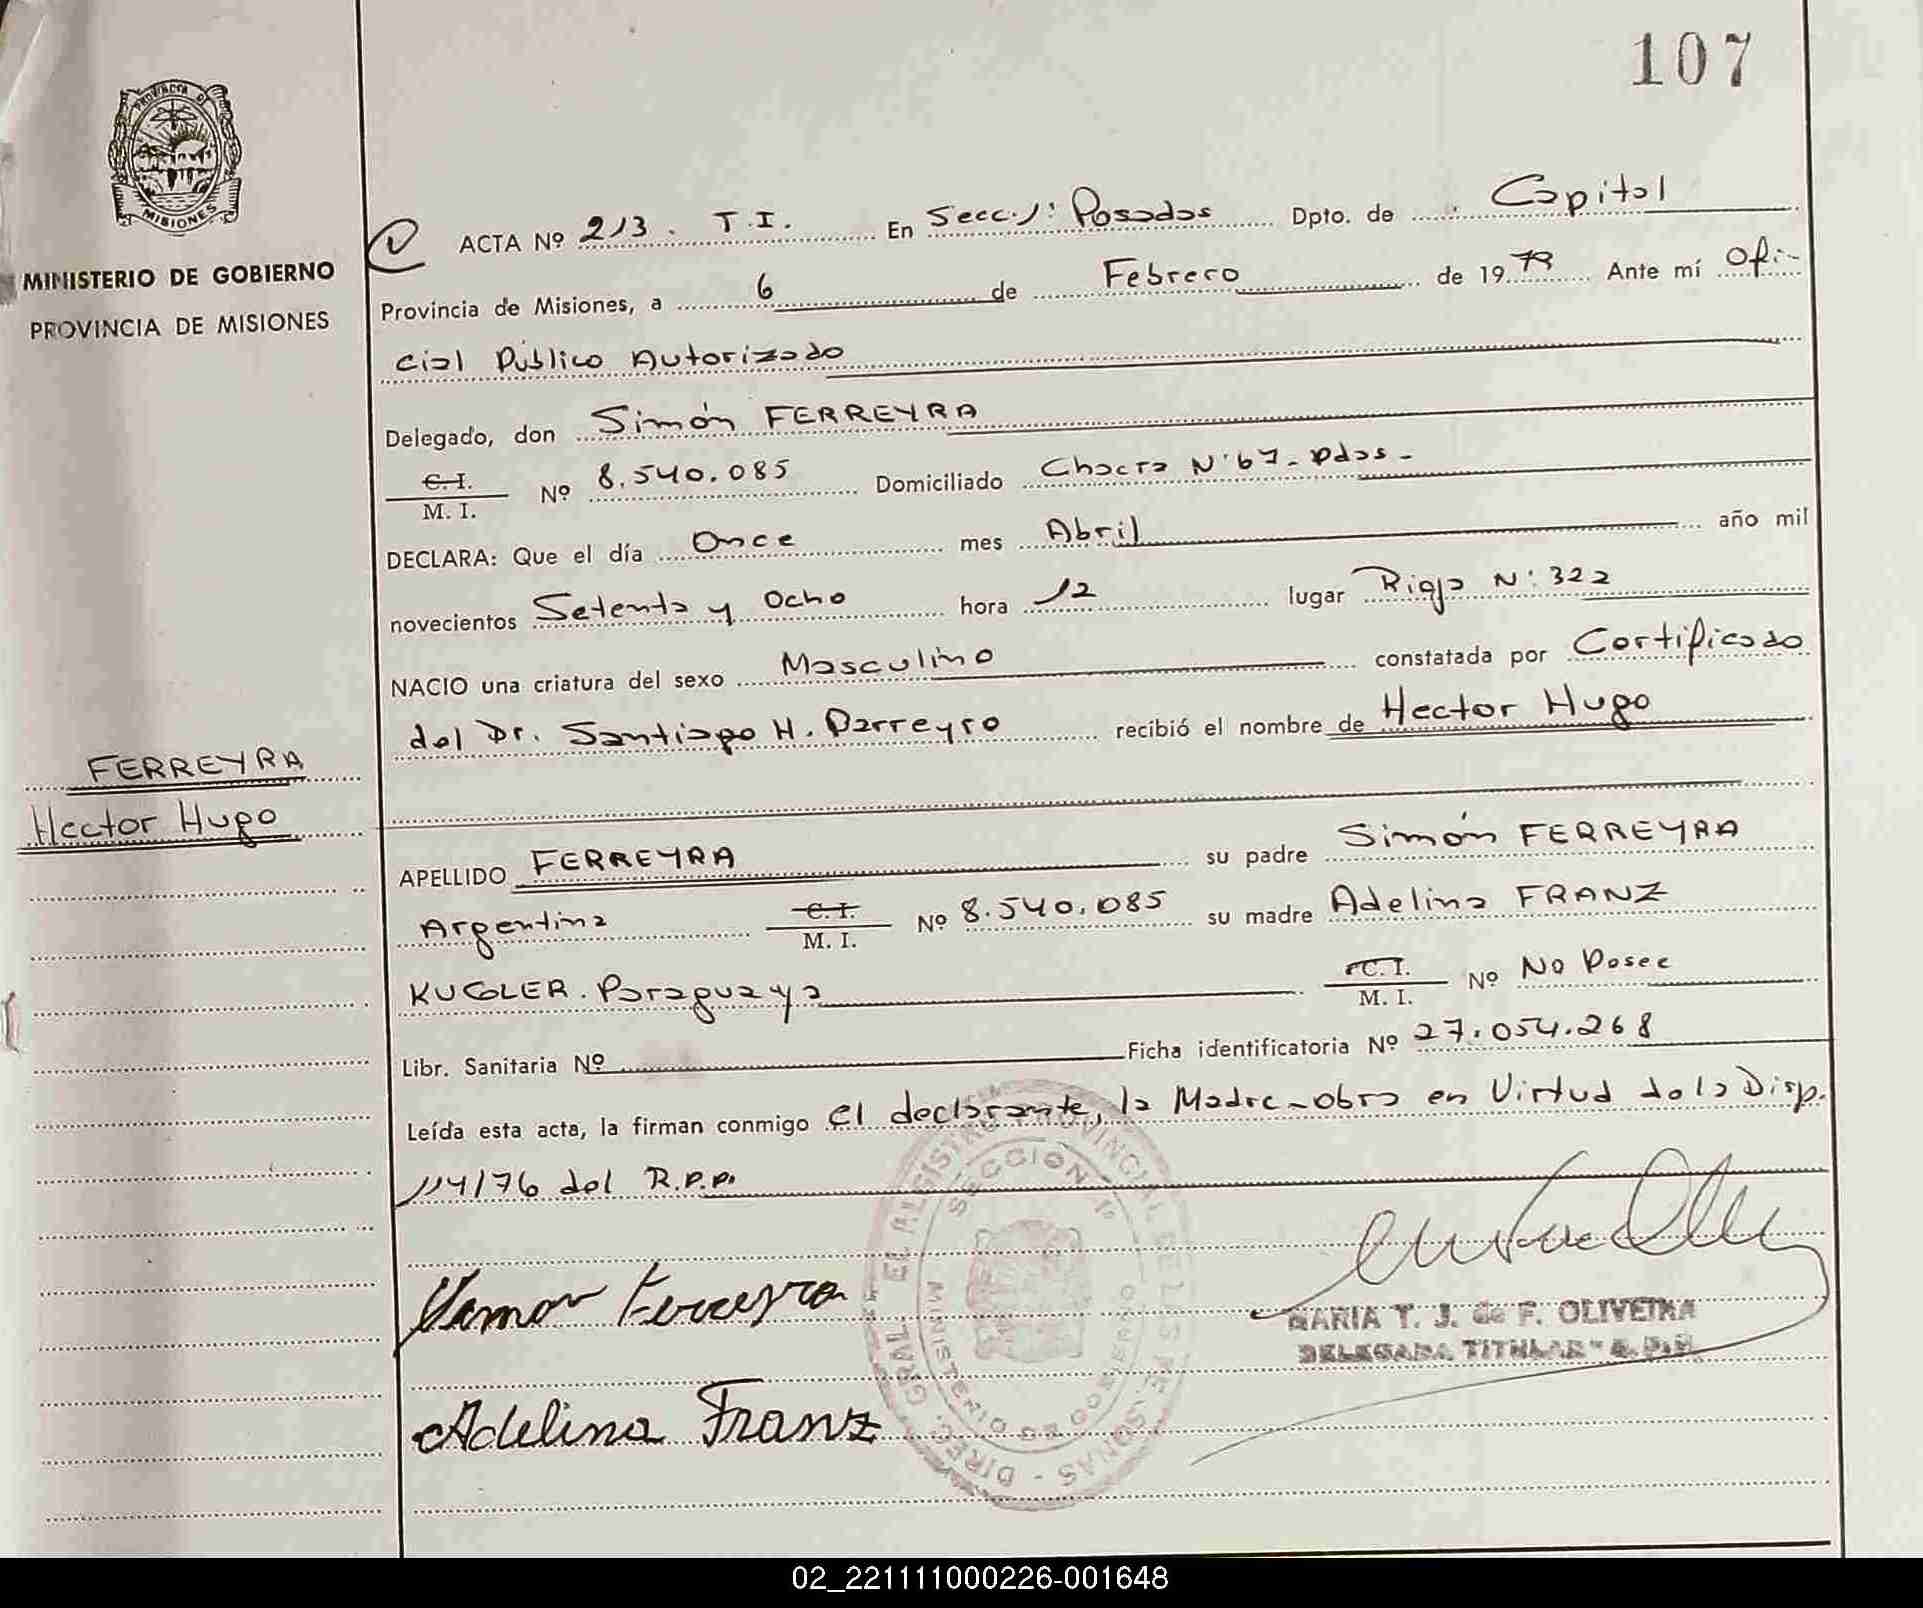 107
PROVINCIA DE
MISIONES
MINISTERIO DE GOBIERNO
PROVINCIA DE MISIONES
ACTA Nº 213. T.I. En Secc. 1: Posadas Dpto. de Capital
Provincia de Misiones, a 6 de Febrero de 1979 Ante mí Ofi-
cial Público Autorizado
Delegado, don Simón FERREYRA
C.I. M. I. Nº 8.540.085 Domiciliado Chacra Nº 67- Pdas-
DECLARA: Que el día Once mes Abril año mil
novecientos Setenta y Ocho hora 12 lugar Rioja Nº 322
NACIO una criatura del sexo Masculino constatada por Certificado
del Dr. Santiago H. Parreyro recibió el nombre de Hector Hugo
FERREYRA
Hector Hugo
APELLIDO FERREYRA su padre Simón FERREYRA
Argentina C.I. M. I. Nº 8.540.085 su madre Adelina FRANZ
KUGLER. Paraguaya C.I. M. I. Nº No Posee
Libr. Sanitaria Nº Ficha identificatoria Nº 27.054.268
Leída esta acta, la firman conmigo el declarante, la Madre-obra en Virtud de la Disp.
114/76 del R.P.P.
Ferreyra
MARIA T. J. de F. OLIVEIRA
DELEGADA TITULAR
Adelina Franz
DIREC. GRAL. EL REGISTRO PROVINCIAL DE LAS PERSONAS -
SECCION 1º
MINISTERIO DE GOBIERNO
02_221111000226-001648